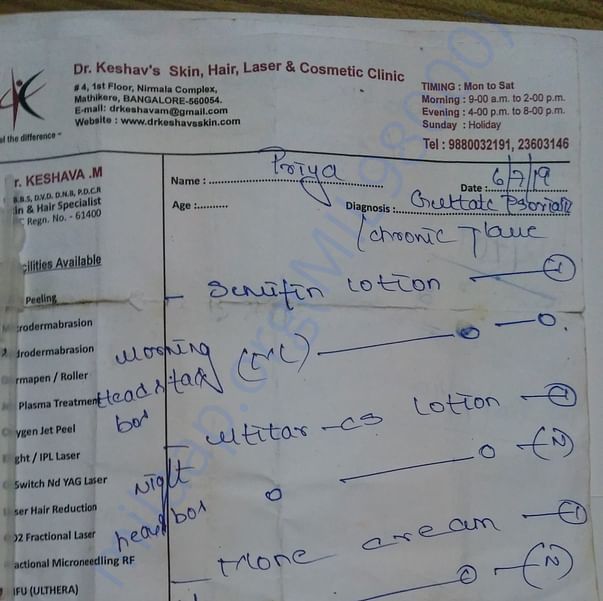 Dr. Keshav's Skin, Hair, Laser & Cosmetic Clinic
# 4, 1st Floor, Nirmala Complex,
Mathikere, BANGALORE-560054.
E-mail: drkeshavam@gmail.com
Website : www.drkeshavsskin.com
TIMING : Mon to Sat
Morning : 9-00 a.m. to 2-00 p.m.
Evening : 4-00 p.m. to 8-00 p.m.
Sunday : Holiday
Tel : 9880032191, 23603146
el the difference
r. KESHAVA .M
B.B.S, D.V.D. D.N.B, P.D.C.R
in & Hair Specialist
C Regn. No. - 61400
Name : Priya
Date : 6/7/19
Age :
Diagnosis : Guttate Psoriasis
/ chronic
cilities Available
Peeling
drodermabrasion
drodermabrasion
rmapen / Roller
Plasma Treatment
ygen Jet Peel
ght / IPL Laser
Switch Nd YAG Laser
ser Hair Reduction
O2 Fractional Laser
actional Microneedling RF
IFU (ULTHERA)
lotion
Morning
0 - 0
- cs lotion - 1
Night
0 0 - (N)
head
cream - 1
0 - (N)